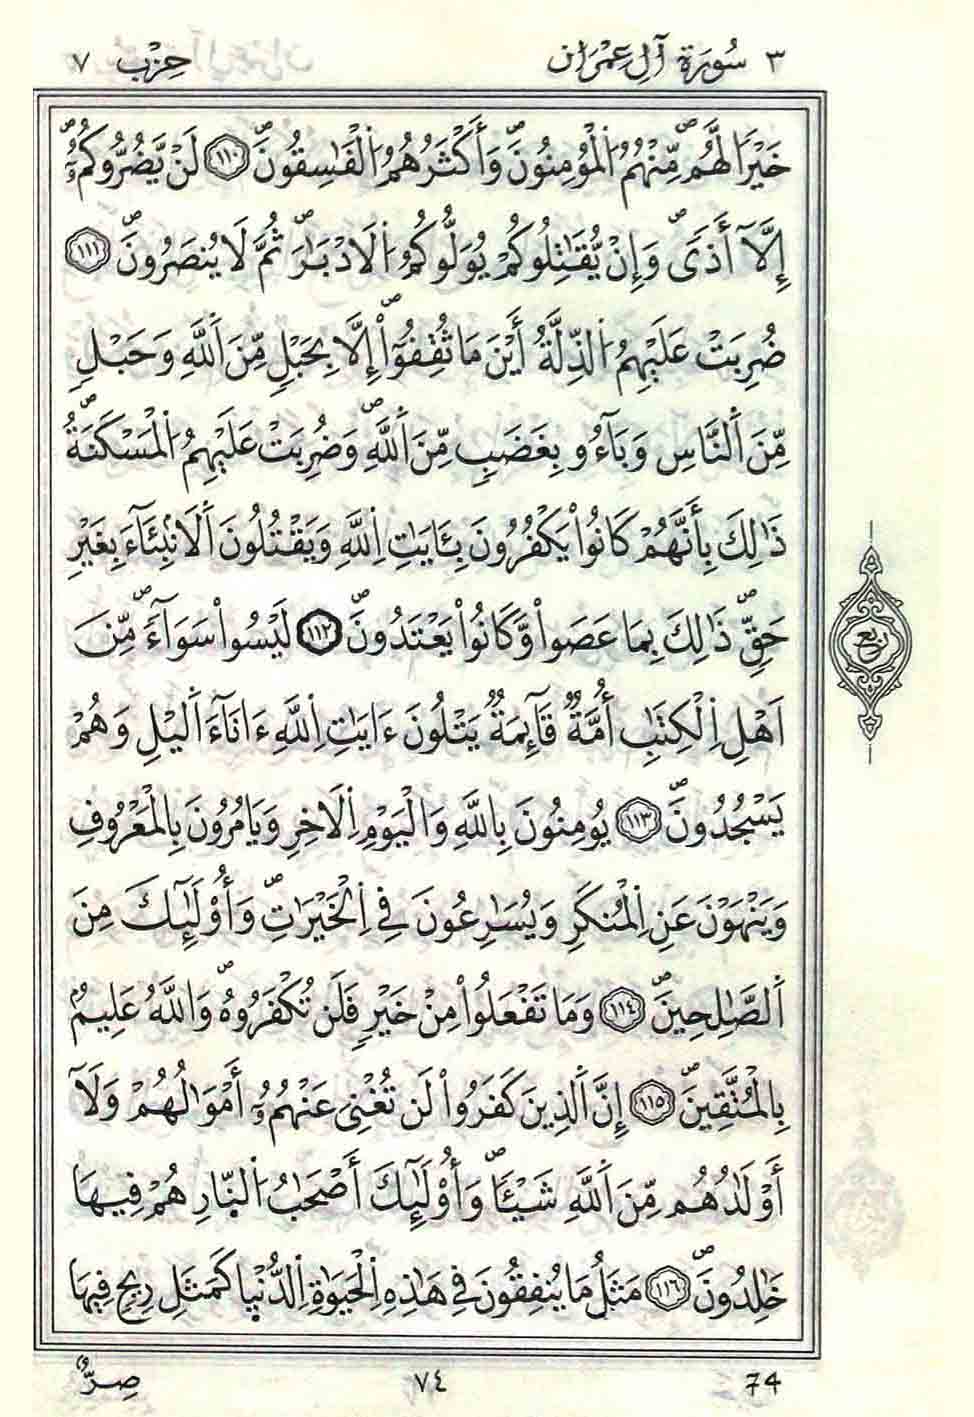 ٣ سُورَةُ آلِ عِمْرَان حِزْب ٧
خَيْرٗا لَّهُمۖ مِّنْهُمُ اُ۬لْمُومِنُونَۖ وَأَكْثَرُهُمُ اُ۬لْفَٰسِقُونَۖ ١١٠ لَنْ يَّضُرُّوكُمُۥٓ
إِلَّآ أَذىٗۖ وَإِنْ يُّقَٰتِلُوكُمْ يُوَلُّوكُمُ اُ۬لَادْبَٰرَۖ ثُمَّ لَا يُنصَرُونَۖ ١١١
ضُرِبَتْ عَلَيْهِمُ اُ۬لذِّلَّةُ أَيْنَ مَا ثُقِفُوٓاْۖ إِلَّا بِحَبْلٖ مِّنَ اَ۬للَّهِ وَحَبْلٖ
مِّنَ اَ۬لنَّاسِ وَبَآءُو بِغَضَبٖ مِّنَ اَ۬للَّهِۖ وَضُرِبَتْ عَلَيْهِمُ اُ۬لْمَسْكَنَةُۖ
ذَٰلِكَ بِأَنَّهُمْ كَانُواْ يَكْفُرُونَ بِـَٔايَٰتِ اِ۬للَّهِ وَيَقْتُلُونَ اَ۬لَانۢبِئَآءَ بِغَيْرِ
حَقّٖۖ ذَٰلِكَ بِمَا عَصَواْ وَّكَانُواْ يَعْتَدُونَۖ ١١٢ لَيْسُواْ سَوَآءٗۖ مِّنَ
اَهْلِ اِ۬لْكِتَٰبِ أُمَّةٞ قَآئِمَةٞ يَتْلُونَ ءَايَٰتِ اِ۬للَّهِ ءَانَآءَ اَ۬ليْلِ وَهُمْ
يَسْجُدُونَۖ ١١٣ يُومِنُونَ بِاللَّهِ وَالْيَوْمِ اِ۬لَاخِرِ وَيَامُرُونَ بِالْمَعْرُوفِ
وَيَنْهَوْنَ عَنِ اِ۬لْمُنكَرِ وَيُسَٰرِعُونَ فِي اِ۬لْخَيْرَٰتِۖ وَأُوْلَٰٓئِكَ مِنَ
اَ۬لصَّٰلِحِينَۖ ١١٤ وَمَا تَفْعَلُواْ مِنْ خَيْرٖ فَلَن تُكْفَرُوهُۖ وَاللَّهُ عَلِيمُۢ
بِالْمُتَّقِينَۖ ١١٥ إِنَّ اَ۬لذِينَ كَفَرُواْ لَن تُغْنِيَ عَنْهُمُۥٓ أَمْوَٰلُهُمْ وَلَآ
أَوْلَٰدُهُم مِّنَ اَ۬للَّهِ شَيْـٔٗاۖ وَأُوْلَٰٓئِكَ أَصْحَٰبُ اُ۬لنّ۪ارِ هُمْ فِيهَا
خَٰلِدُونَۖ ١١٦ مَثَلُ مَا يُنفِقُونَ فِي هَٰذِهِ اِ۬لْحَيَوٰةِ اِ۬لدُّنْي۪ا كَمَثَلِ رِيحٖ فِيهَا
ربع
صِرّٞ ٧٤ 74